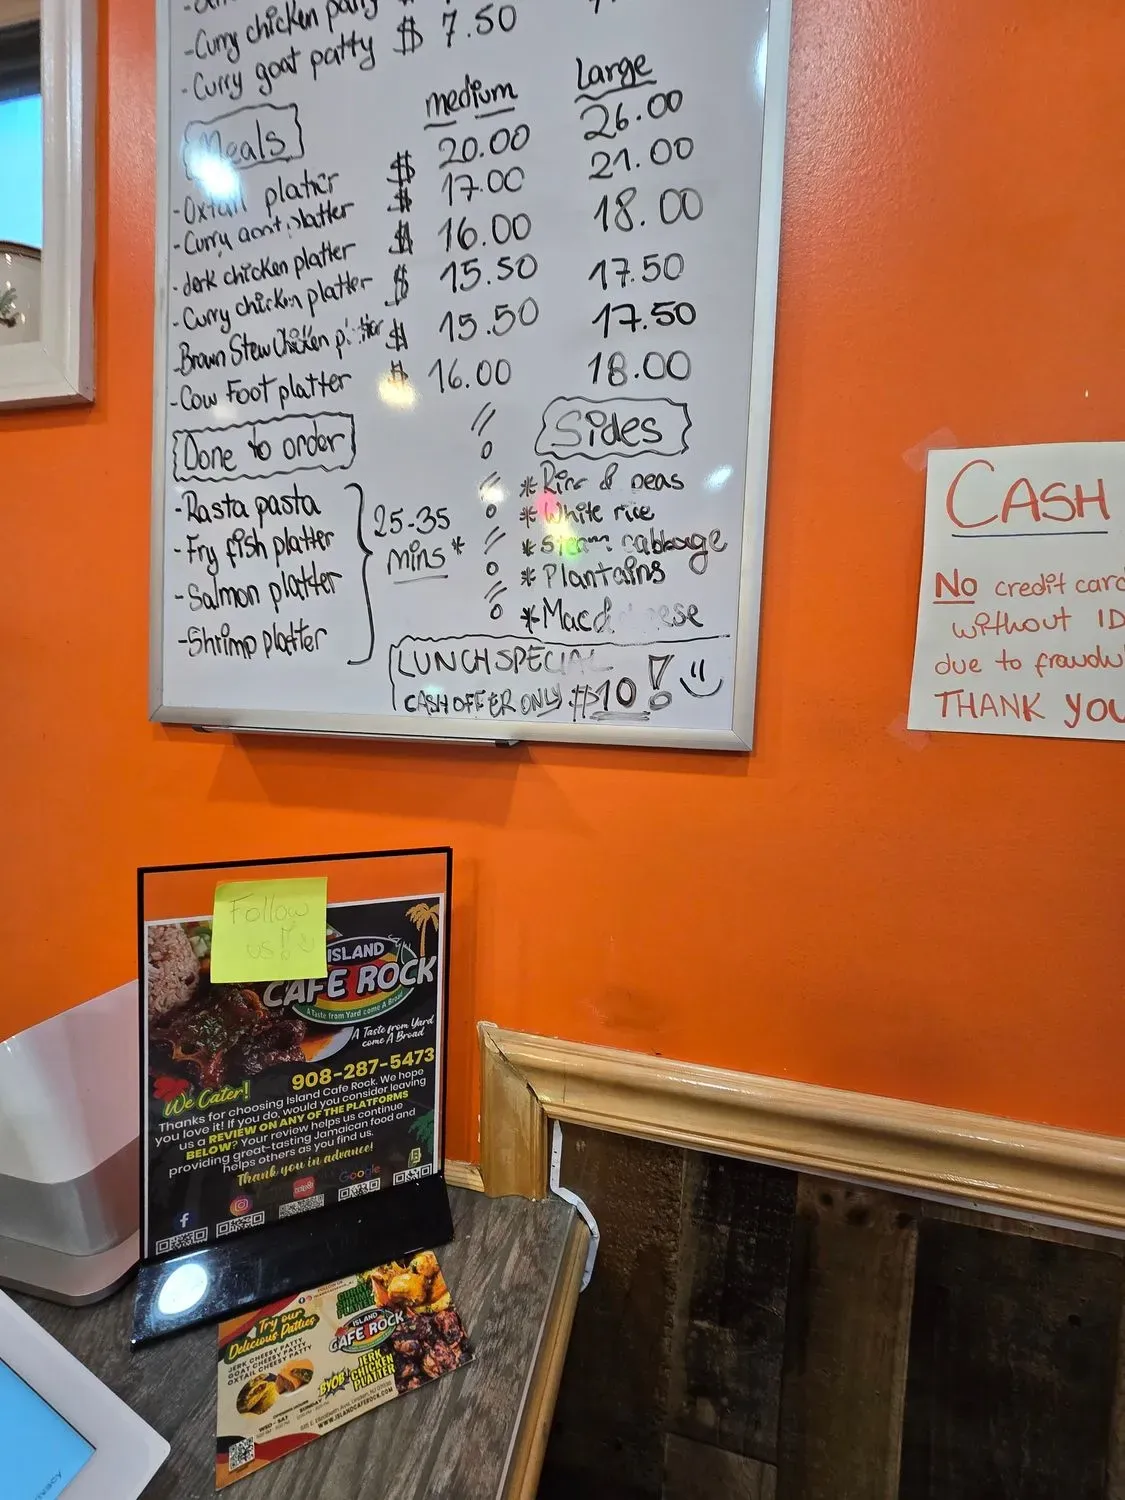 -Curry chicken patty
-Curry goat patty $ 7.50
medium Large
Meals
-Oxtail platter $ 20.00 26.00
-Curry goat platter $ 17.00 21.00
-Jerk chicken platter $ 16.00 18.00
-Curry chicken platter $ 15.50 17.50
-Brown Stew Chicken platter $ 15.50 17.50
-Cow Foot platter $ 16.00 18.00
Done to order
-Rasta pasta
-Fry fish platter
-Salmon platter
-Shrimp platter
25-35
mins*
Sides
* Rice & peas
* White rice
* Steam cabbage
* Plantains
* Mac & cheese
LUNCH SPECIAL
CASH OFFER ONLY $10!
CASH
No credit card
without ID
due to
THANK YOU
Follow
us!
ISLAND
CAFE ROCK
A Taste from Yard come A Broad
A Taste from Yard
come A Broad
908-287-5473
We Cater!
Thanks for choosing Island Cafe Rock. We hope
you love it! If you do, would you consider leaving
us a REVIEW ON ANY OF THE PLATFORMS
BELOW? Your review helps us continue
providing great-tasting Jamaican food and
helps others as you find us.
Thank you in advance!
Google
Try our
Delicious Patties
JERK CHEESY PATTY
GOAT CHEESY PATTY
OXTAIL CHEESY PATTY
ISLAND
CAFE ROCK
BYOB
JERK
CHICKEN
PLATTER
WED - SAT
SUNDAY
WWW.ISLANDCAFEROCK.COM